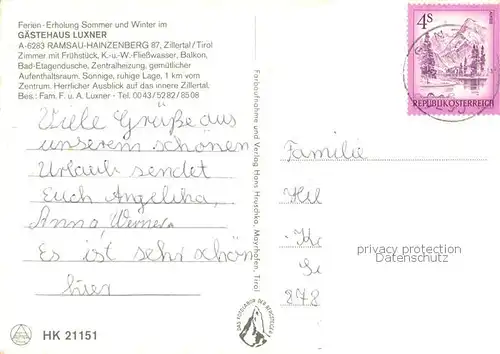 Ferien-Erholung Sommer und Winter im
GÄSTEHAUS LUXNER
A-6283 RAMSAU-HAINZENBERG 87, Zillertal/Tirol
Zimmer mit Frühstück, K.-u.-W.-Fließwasser, Balkon,
Bad-Etagendusche, Zentralheizung, gemütlicher
Aufenthaltsraum. Sonnige, ruhige Lage, 1 km vom
Zentrum. Herrlicher Ausblick auf das innere Zillertal.
Bes.: Fam. F. u. A. Luxner - Tel. 0043/5282/8508
Viele Grüße aus
unserem schönen
Urlaub sendet
Euch Angelika,
Anna, Werner.
Es ist sehr schön
hier
HK 21151
Farbaufnahme und Verlag Hans Hruschka, Mayrhofen, Tirol
4S
REPUBLIK ÖSTERREICH
Familie
Hil
278
privacy protection
Datenschutz